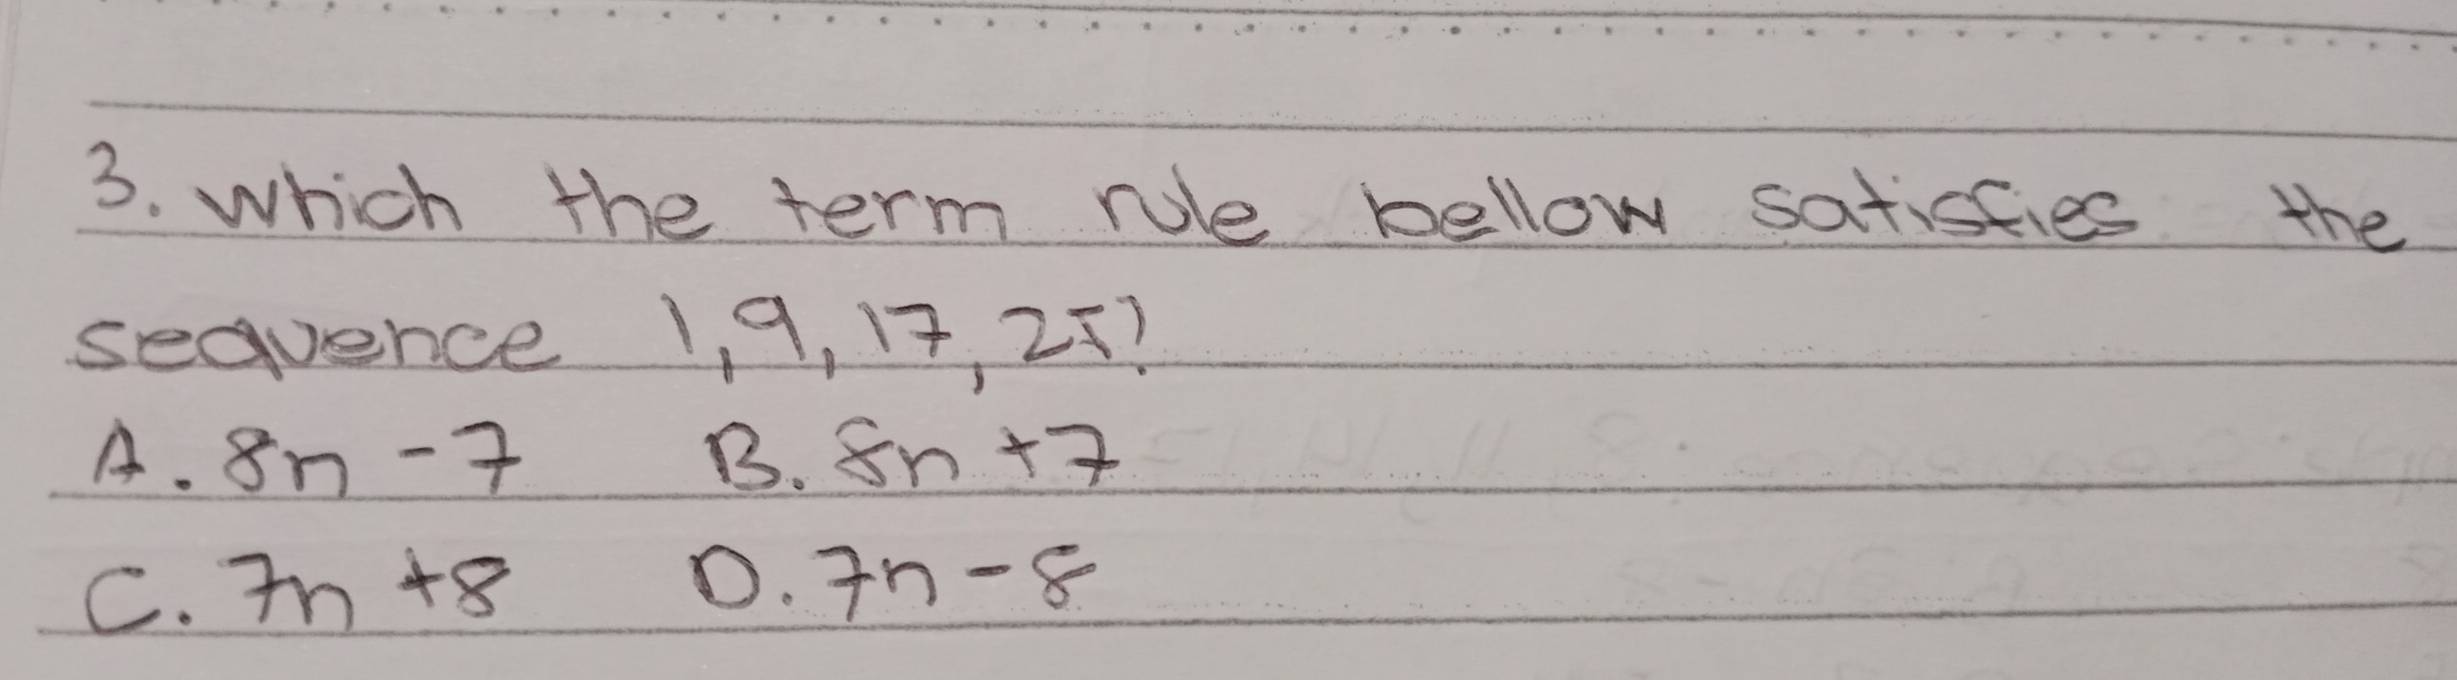 3. which the term rule bellow satisfies the
sequence 1, 9, 17, 25?
A. 8n - 7 B. 8n + 7
C. 7n + 8 D. 7n - 8